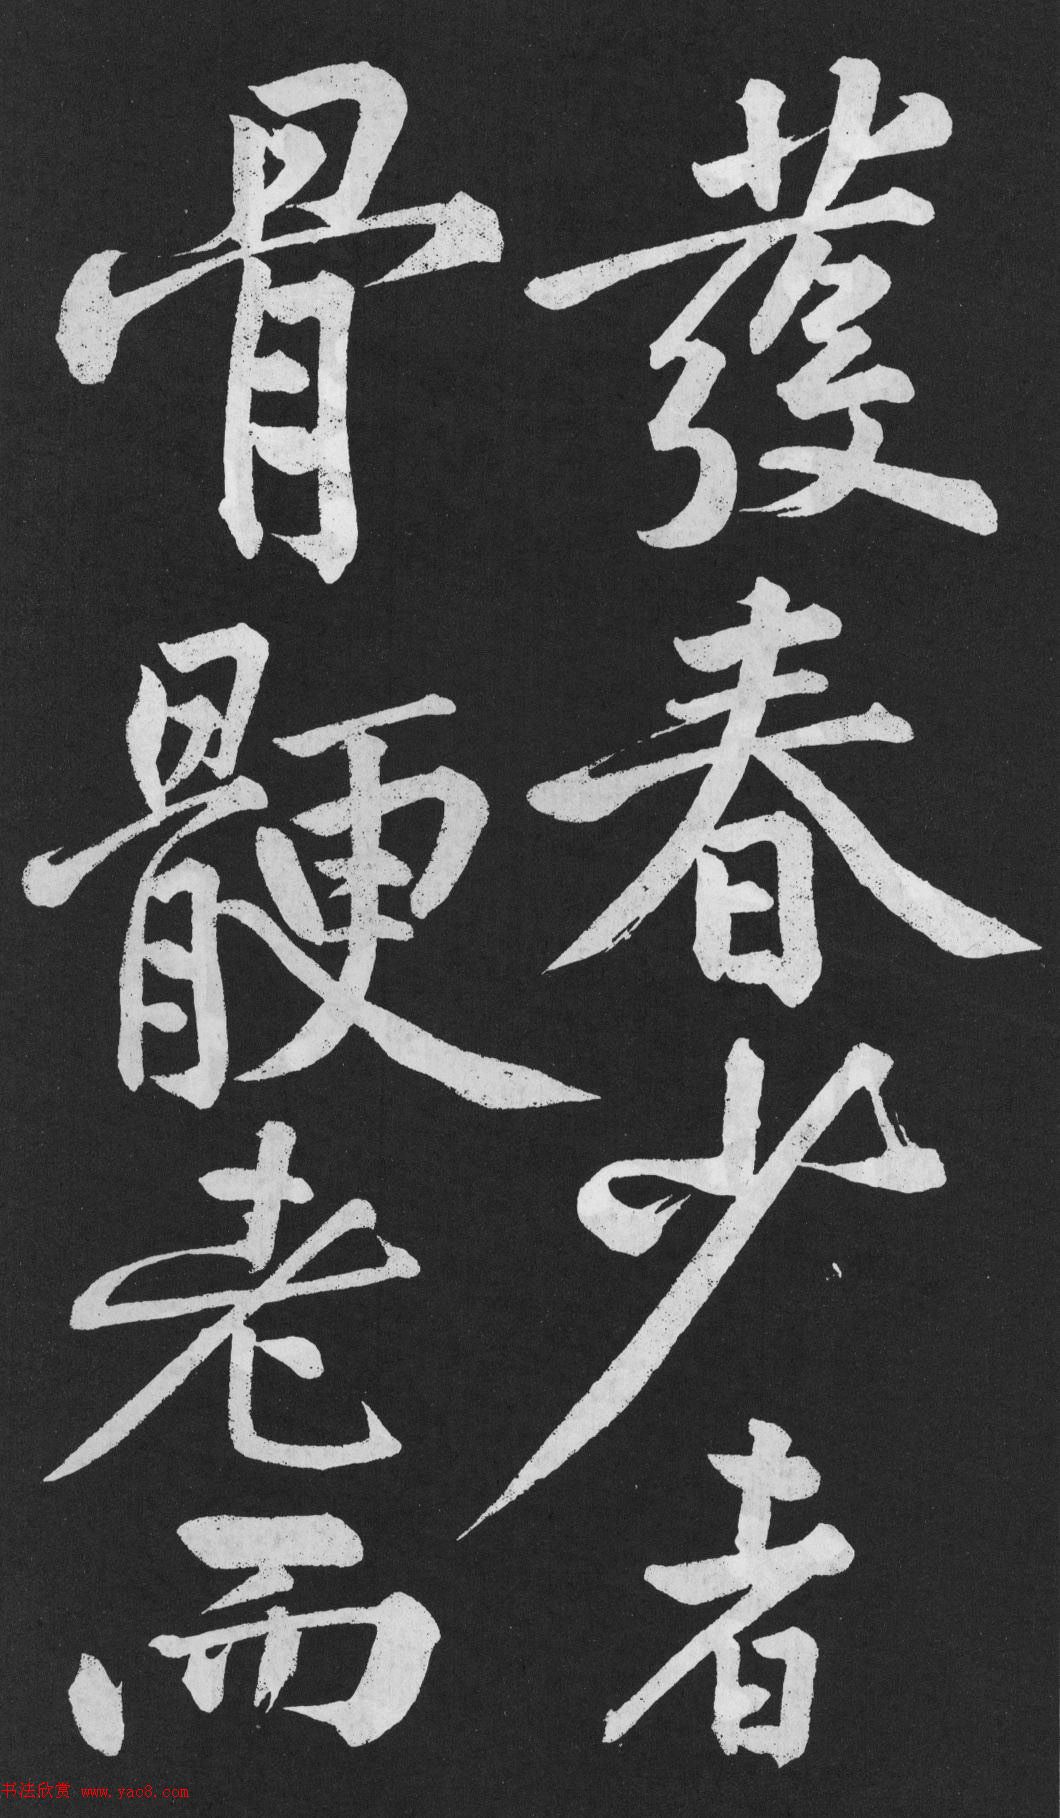 發春少者
骨骾老而
书法欣赏 www.yac8.com